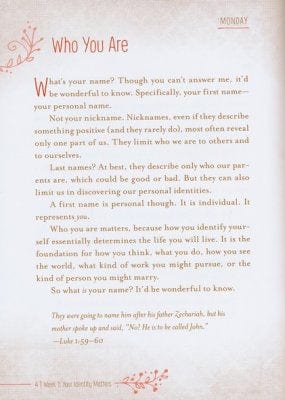 MONDAY
Who You Are
What's your name? Though you can't answer me, it'd
be wonderful to know. Specifically, your first name—
your personal name.
Not your nickname. Nicknames, even if they describe
something positive (and they rarely do), most often reveal
only one part of us. They limit who we are to others and
to ourselves.
Last names? At best, they describe only who our par-
ents are, which could be good or bad. But they can also
limit us in discovering our personal identities.
A first name is personal though. It is individual. It
represents you.
Who you are matters, because how you identify your-
self essentially determines the life you will live. It is the
foundation for how you think, what you do, how you see
the world, what kind of work you might pursue, or the
kind of person you might marry.
So what is your name? It'd be wonderful to know.
They were going to name him after his father Zechariah, but his
mother spoke up and said, "No! He is to be called John."
—Luke 1:59–60
4 | Week 1: Your Identity Matters